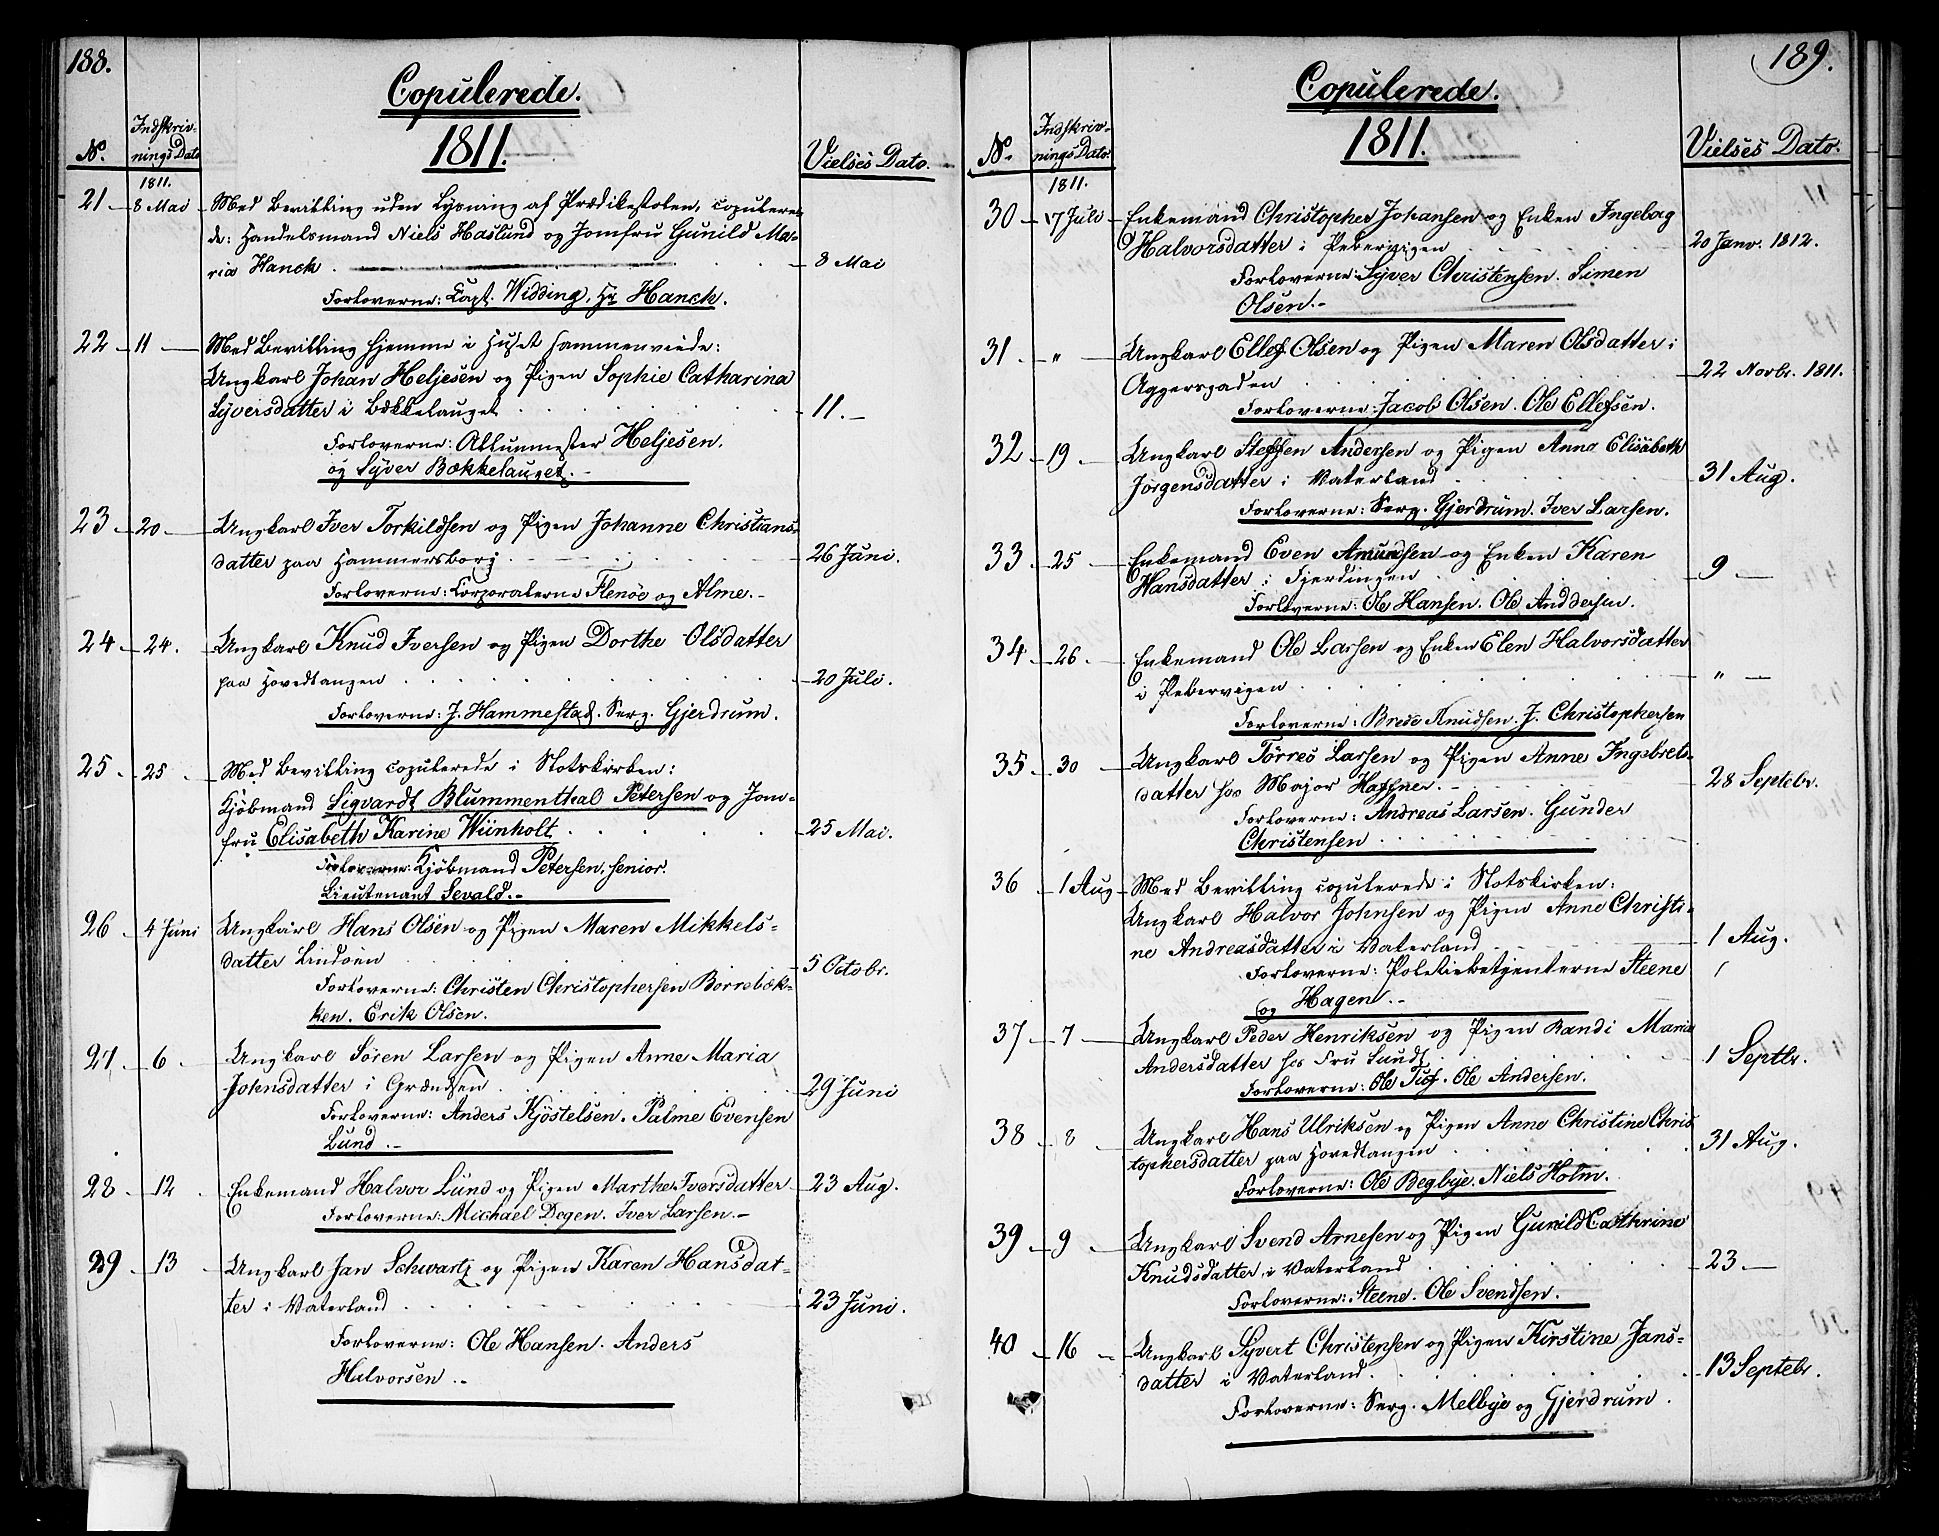 188.
Copulerede.
1811.
N.
Indskriv-
nings Dato
Vielses Dato.
1811.
21 - 8 Mai - Med Bevilling uden Lysning af Prædikestolen, copulere-
de: Handelsmand Niels Haslund og Jomfru Gunild Ma-
ria Hanck . - 8 Mai
Forloverne: Capt. Widding, Hr Hanck.
22 - 11 - Med Bevilling hjemme i Huset sammenviede:
Ungkarl Johan Heljesen og Pigen Sophie Catharina
Syversdatter i Bækkelauget . . . . - 11. -
Forloverne: Allunmester Heljesen.
og Syver Bækkelauget. -
23 - 20 - Ungkarl Iver Torkildsen og Pigen Johanne Christians-
datter paa Hammersborg . - 26 Juni.
Forloverne: Corporalerne Flenöe og Alme. -
24 - 24. Ungkarl Knud Iversen og Pigen Dorthe Olsdatter
paa Hovedtangen . . . . - 20 Juli.
Forloverne: J. Hammestad. Serg. Gjerdrum.
25 - 25 - Med Bevilling copulerede i Slotskirken:
Kjöbmand Sigvardt Blummenthal Petersen og Jom-
fru Elisabeth Karine Wünholt . . . - 25 Mai.
Forloverne: Kjöbmand Petersen, senior.
Lieutenant Sevald. -
26 - 4 Juni Ungkarl Hans Olsen og Pigen Maren Mikkels-
datter Lindöen . . . - 5 Octobr.
Forloverne: Christen Christophersen Borrebæk-
ken. Erik Olsen.
27 - 6 - Ungkarl Sören Larsen og Pigen Anne Maria
Johnsdatter i Grændsen . . . . - 29 Juni
Forloverne: Anders Kjöstelsen. Palme Evensen
Lund. -
28 - 12 - Enkemand Halvor Lund og Pigen Marthe Iversdatter - 23 Aug.
Forloverne: Michael Degen. Iver Larsen. -
29 - 13 - Ungkarl Jan Schwartz og Pigen Karen Hansdat-
ter i Vaterland . . . . - 23 Juni.
Forloverne: Ole Hansen. Anders
Halvorsen. -
189.
Copulerede.
1811.
N.
Indskriv-
nings Dato.
Vielses Dato.
1811.
30 - 17 Juli - Enkemand Christopher Johansen og Enken Ingeborg
Halvorsdatter i Pebervigen - 20 Janv. 1812.
Forloverne: Syver Christensen. Simen
Olsen. -
31 - " - Ungkarl Ellef Olsen og Pigen Maren Olsdatter i
Aggersgaden . . . . - 22 Novbr. 1811.
Forloverne: Jacob Olsen. Ole Ellefsen.
32 - 19 - Ungkarl Steffen Andersen og Pigen Anne Elisabeth
Jörgensdatter i Vaterland . . . - 31 Aug.
Forloverne: Serg. Gjerdrum. Iver Larsen.
33 - 25 - Enkemand Even Amundsen og Enken Karen
Hansdatter i Fjerdingen . . . - 9 -
Forloverne: Ole Hansen. Ole Anddersen.
34 - 26. - Enkemand Ole Larsen og Enken Elen Halvorsdatter
i Pebervigen . . . . - " -
Forloverne: Brede Knudsen. J. Christophersen
35 - 30 - Ungkarl Törres Larsen og Pigen Anne Ingebrets-
datter hos Major Haffner. - 28 Septebr.
Forloverne: Andreas Larsen. Gunder
Christensen . . . .
36 - 1 Aug - Med Bevilling copulerede i Slotskirken:
Ungkarl Halvor Johnsen og Pigen Anne Christi-
ne Andreasdatter i Vaterland . - 1 Aug.
Forloverne: Politiebetjenterne Steene
og Hagen. -
37 - 7 - Ungkarl Peder Henriksen og Pigen Randi Maria
Andersdatter hos Fru Lundt . . . - 1 Septbr.
Forloverne: Ole Tief. Ole Andersen.
38 - 8 - Ungkarl Hans Ulriksen og Pigen Anne Christine Chris
tophersdatter paa Hovedtangen . . . 31 Aug.
Forloverne: Ole Begbye. Niels Holm.
39 - 9 - Ungkarl Svend Arnesen og Pigen Gunild Cathrine
Knudsdatter i Vaterland . . . - 23. -
Forloverne: Steene. Ole Svendsen.
40 - 16 - Ungkarl Syvert Christensen og Pigen Kirstine Jans-
datter i Vaterland . . . . - 13 Septebr.
Forloverne: Serg. Melbye og Gjerdrum.